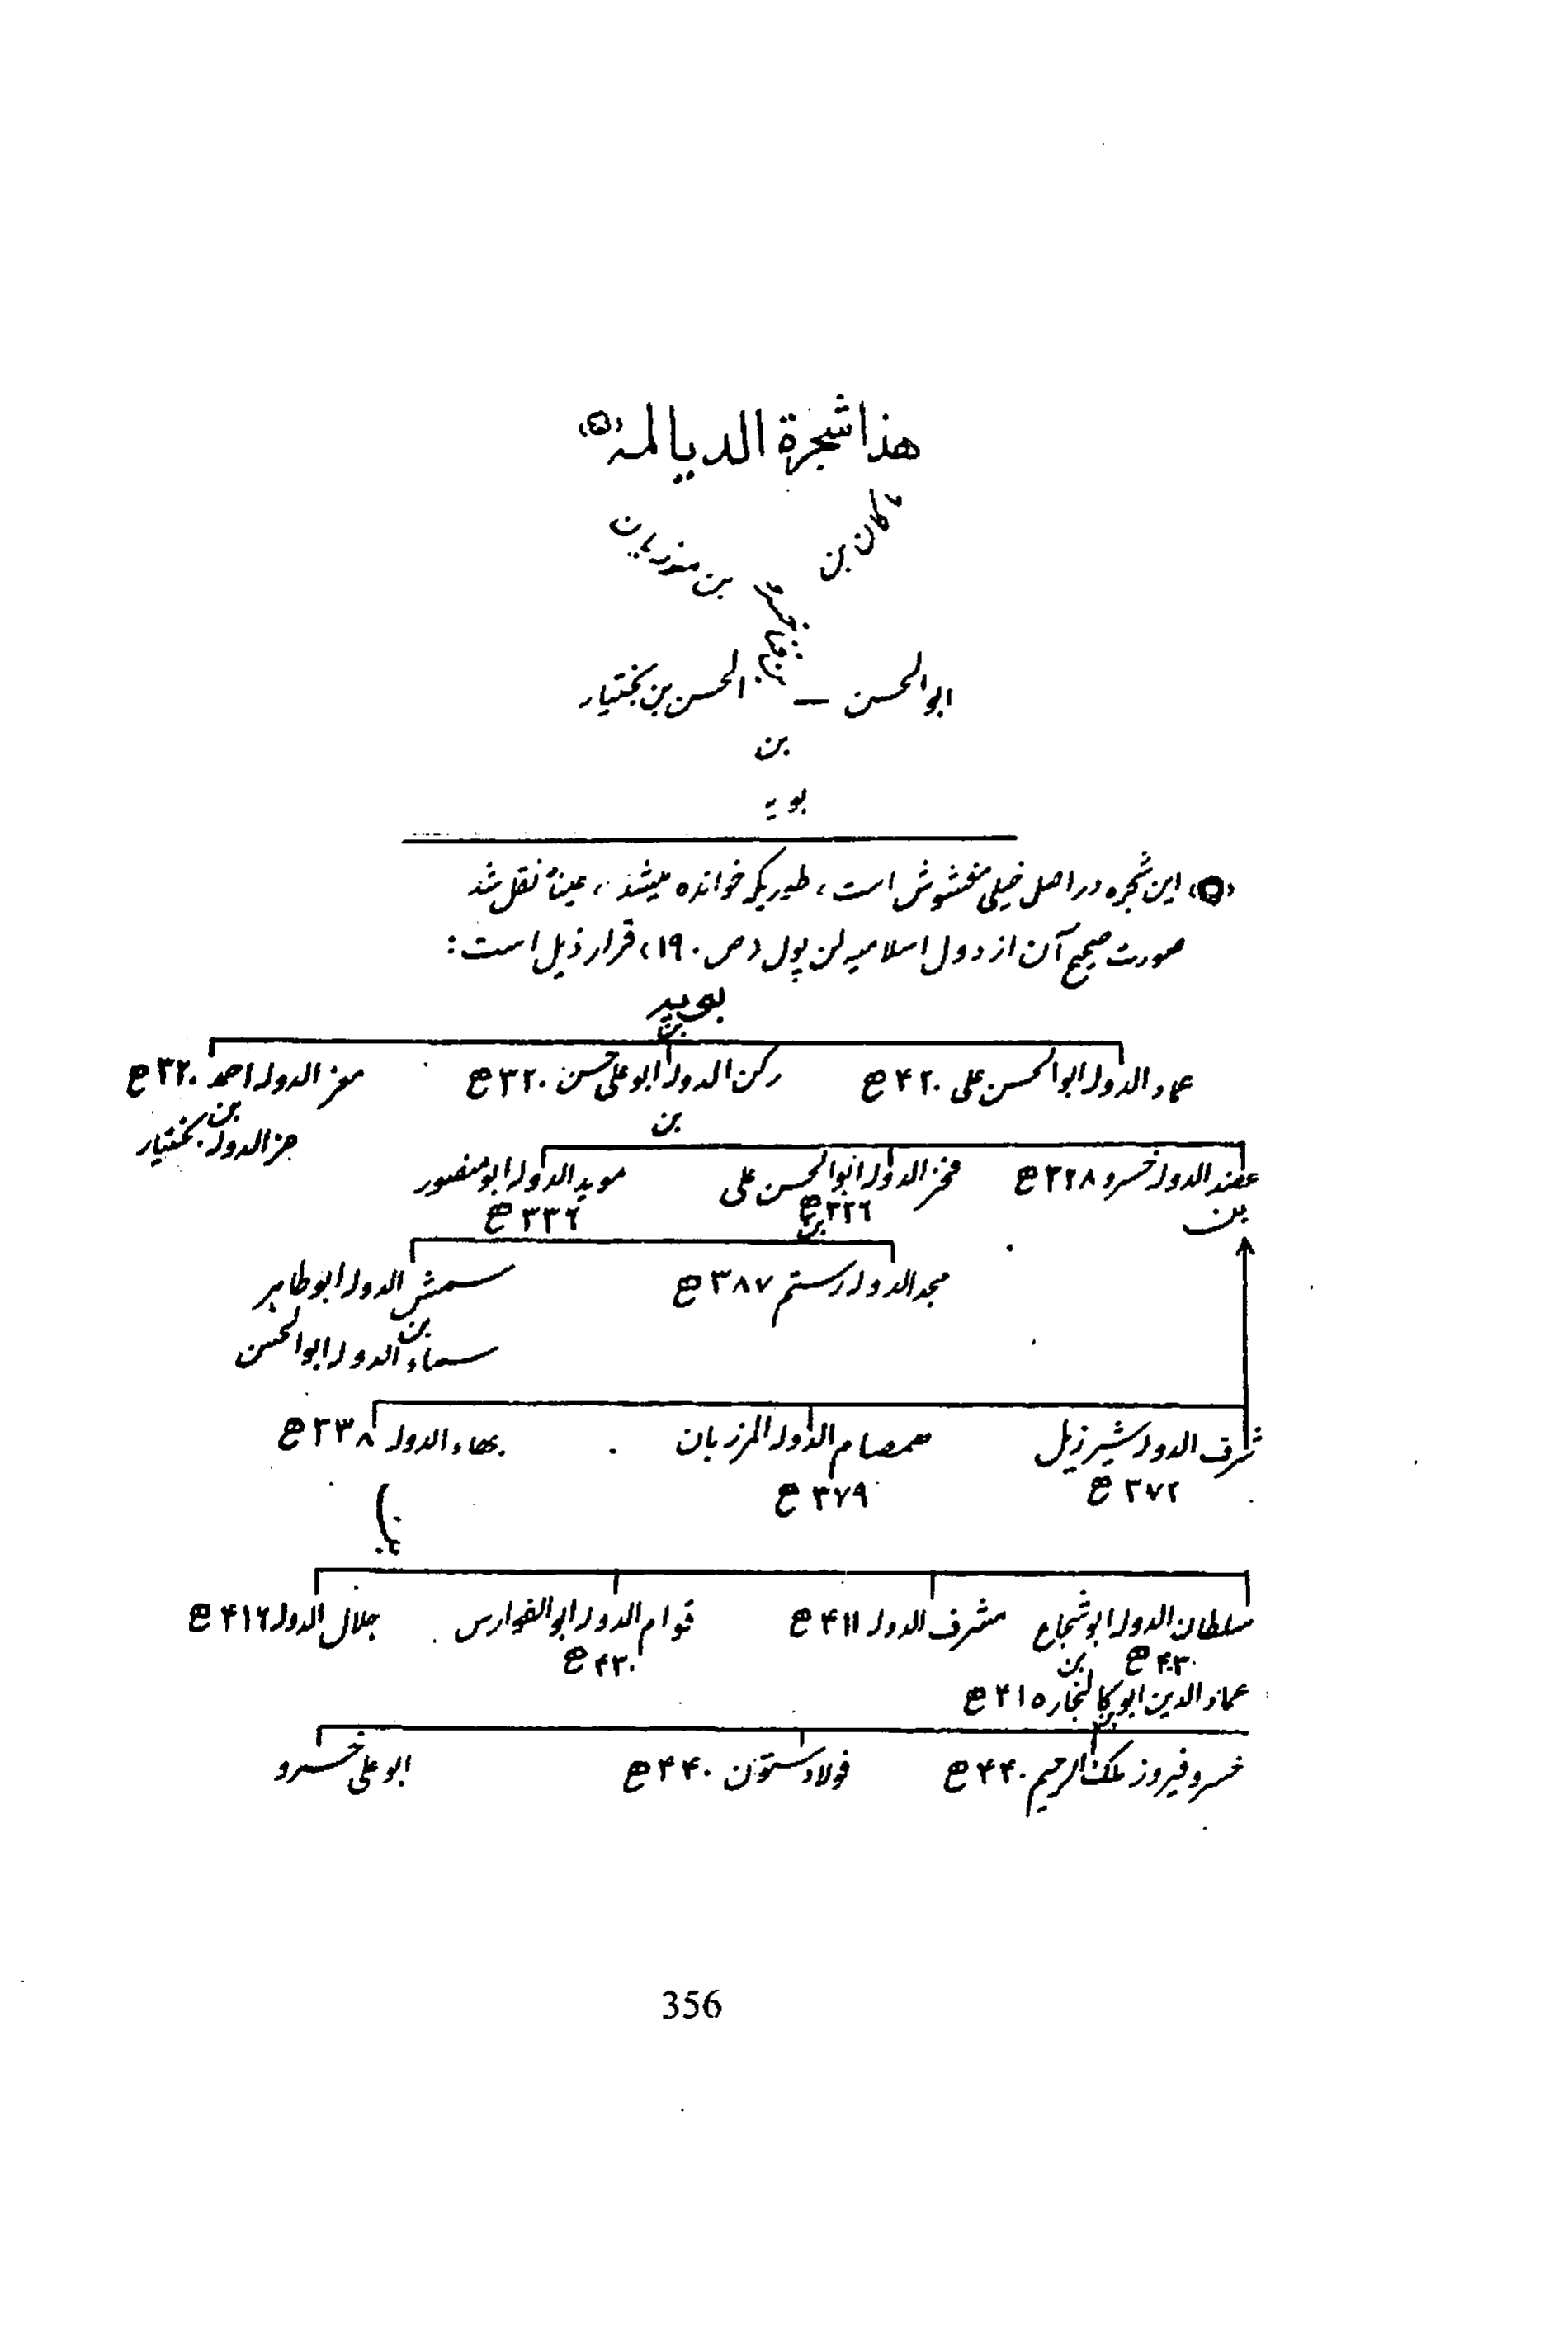 هذا شجرة الديالمه (۵)
ماكان بن
بن مرزبان
ابوالحسن — الحسن بن بختیار
بن
بویه
(۵) این شجره در اصل خیلی مغشوش است، طوریکه خوانده میشد، عیناً نقل شد
صورت صحیح آن از دول اسلامیه لن پول (ص ۱۹۰) قرار ذیل است:
بویه
بن
عماد الدوله ابوالحسن علی ۴۲۰ ھ
رکن الدوله ابوعلی حسن ۳۲۰ ھ
معز الدوله احمد ۳۲۰ ھ
بن
بن
عز الدوله بختیار
عضد الدوله خسرو ۳۲۸ ھ
فخر الدوله ابوالحسن علی
موید الدوله ابومنصور
بن
۳۲۶ ھ
بن
۳۳۶ ھ
مجد الدوله رستم ۳۸۷ ھ
شمس الدوله ابوطاهر
بن
سماء الدوله ابوالحسن
شرف الدوله شیرزیل
صمصام الدوله المرزبان
بهاء الدوله ۳۳۸ ھ
۳۷۲ ھ
۳۷۹ ھ
سلطان الدوله ابوشجاع
مشرف الدوله ۴۱۱ ھ
قوام الدوله ابوالفوارس
جلال الدوله ۴۱۶ ھ
۴۰۳ ھ
بن
عماد الدین ابوکالنجار ۴۱۵ ھ
بن
خسرو فیروز ملک الرحیم ۴۴۰ ھ
فولادستون ۴۴۰ ھ
ابوعلی خسرو
356